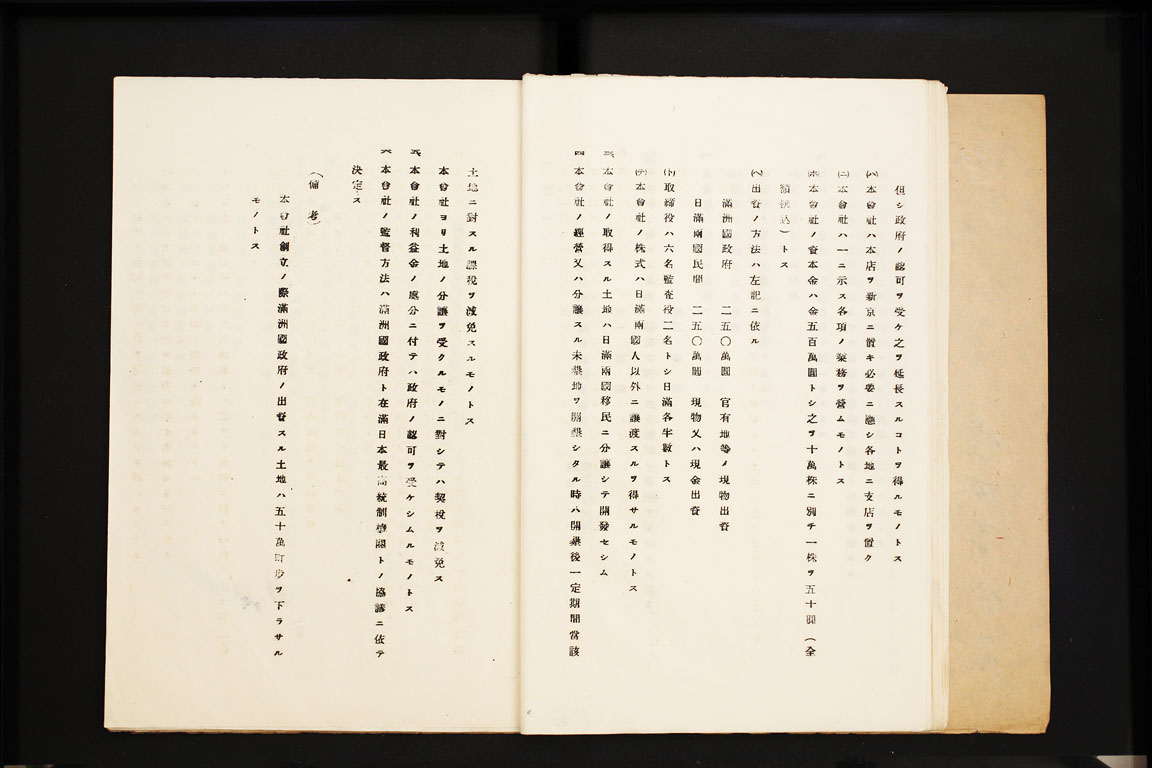 但シ政府ノ認可ヲ受ケ之ヲ延長スルコトヲ得ルモノトス
(ハ)本會社ハ本店ヲ新京ニ置キ必要ニ應シ各地ニ支店ヲ置ク
(ニ)本會社ハ一ニ示ス各項ノ業務ヲ營ムモノトス
(ホ)本會社ノ資本金ハ金五百萬圓トシ之ヲ十萬株ニ別チ一株ヲ五十圓(全
額拂込)トス
(ヘ)出資ノ方法ハ左記ニ依ル
滿洲國政府 二五〇萬圓 官有地等ノ現物出資
日滿兩國民間 二五〇萬圓 現物又ハ現金出資
(ト)取締役ハ六名監査役二名トシ日滿各半數トス
(チ)本會社ノ株式ハ日滿兩國人以外ニ讓渡スルヲ得サルモノトス
三、本會社ノ取得スル土地ハ日滿兩國移民ニ分讓シテ開發セシム
四、本會社ノ經營又ハ分讓スル未墾地ヲ開墾シタル時ハ開墾後一定期間當該
土地ニ對スル課稅ヲ減免スルモノトス
本會社ヨリ土地ノ分讓ヲ受クルモノニ對シテハ契稅ヲ減免ス
五、本會社ノ利益金ノ處分ニ付テハ政府ノ認可ヲ受ケシムルモノトス
六、本會社ノ監督方法ハ滿洲國政府ト在滿日本最高統制機關トノ協議ニ依テ
決定ス
(備考)
本會社創立ノ際滿洲國政府ノ出資スル土地ハ五十萬町步ヲ下ラサル
モノトス